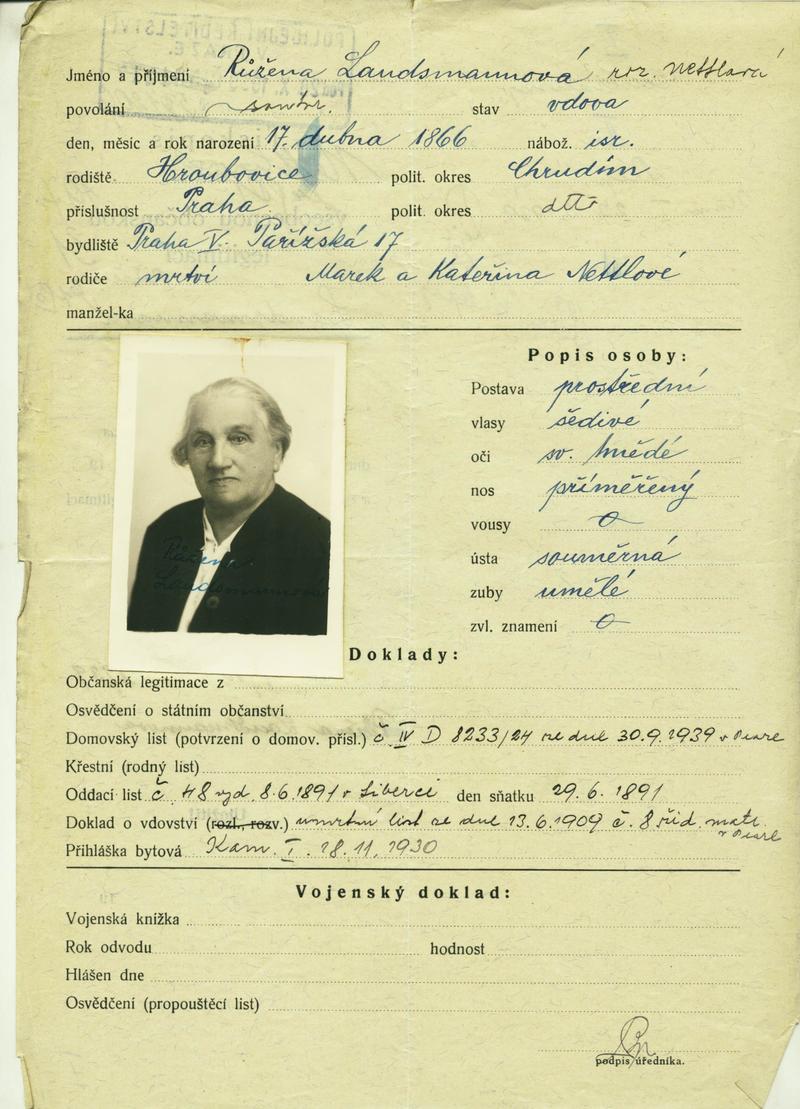 POLICEJNÍ ŘEDITELSTVÍ
Jméno a příjmení Růžena Landsmannová roz. Nettlová
povolání soukr. stav vdova
den, měsíc a rok narození 17. dubna 1866 nábož. isr.
rodiště Hroubovice polit. okres Chrudim
příslušnost Praha polit. okres dtto
bydliště Praha V. Pařížská 17
rodiče mrtví Marek a Kateřina Nettlové
manžel-ka
Popis osoby:
Postava prostřední
vlasy šedivé
oči sv. hnědé
nos přiměřený
vousy
ústa souměrná
zuby umělé
zvl. znamení
Růžena
Landsmannová
Doklady:
Občanská legitimace z
Osvědčení o státním občanství
Domovský list (potvrzení o domov. přísl.) č. IV D 8233/24 ze dne 30.9.1939 v Praze
Křestní (rodný list)
Oddací list č. 48 vyd. 8.6.1891 v Liberci den sňatku 29.6.1891
Doklad o vdovství (rozl., rozv.) úmrtní list ze dne 13.6.1909 č. 8 žid. matr.
v Praze
Přihláška bytová Kam. I. 18.11.1930
Vojenský doklad:
Vojenská knížka
Rok odvodu hodnost
Hlášen dne
Osvědčení (propouštěcí list)
podpis úředníka.